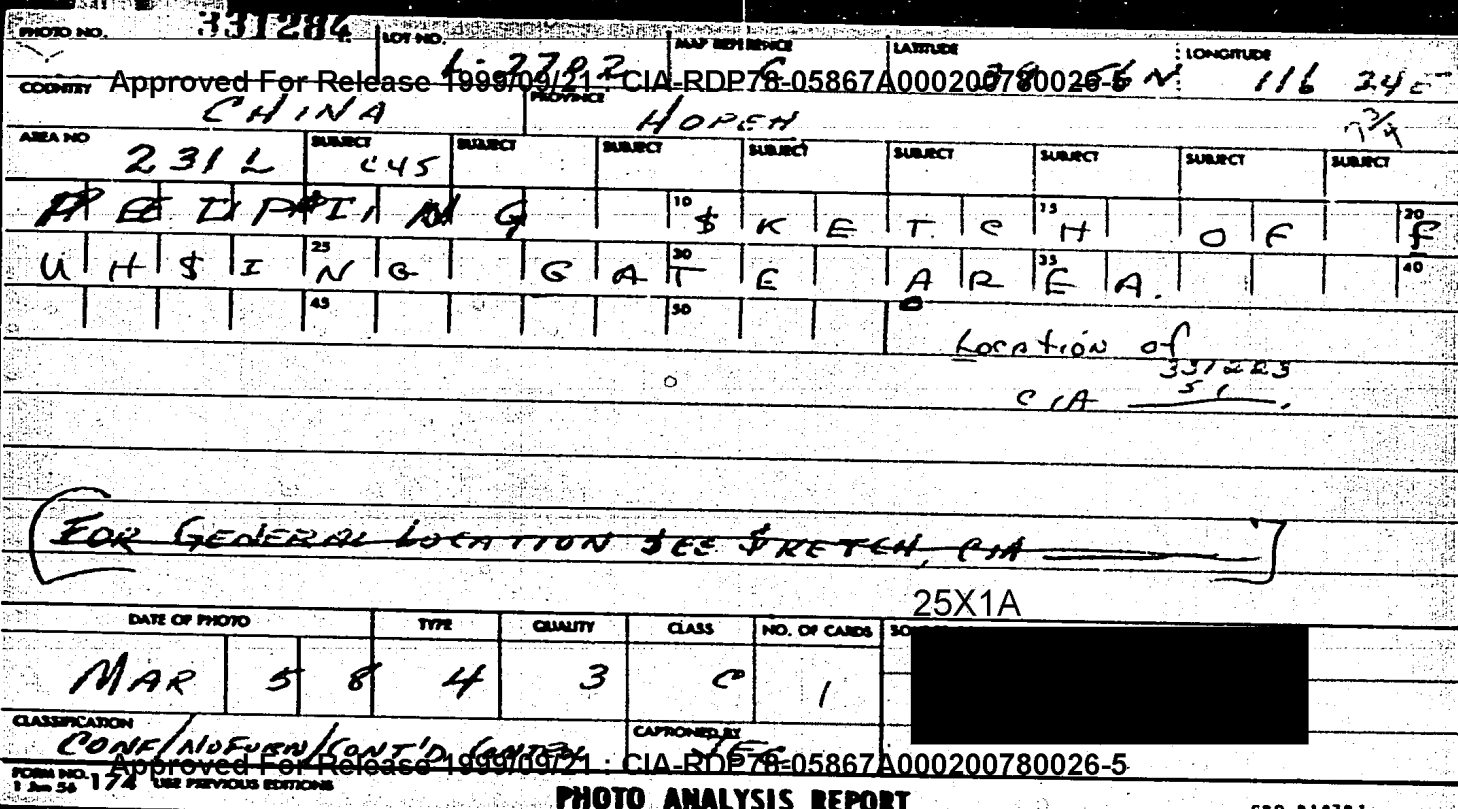 PHOTO NO. 331284 LOT NO. L-2702 MAP REFERENCE G LATITUDE 38 56 N LONGITUDE 116 24 E
Approved For Release 1999/09/21 : CIA-RDP78-05867A000200780026-5
COUNTRY CHINA PROVINCE HOPEH
AREA NO 231L SUBJECT C45 SUBJECT SUBJECT SUBJECT SUBJECT SUBJECT SUBJECT SUBJECT
10 SKETCH 15 OF 20 F
UHSI 25 NG GA 30 TE AR 35 EA. 40
45 50
Location of
CIA 51
FOR GENERAL LOCATION SEE SKETCH, CIA
25X1A
DATE OF PHOTO TYPE QUALITY CLASS NO. OF CARDS
MAR 58 4 3 C 1
CLASSIFICATION CONF/NOFORN/CONT'D CAPTIONED BY
Approved For Release 1999/09/21 : CIA-RDP78-05867A000200780026-5
FORM NO. 174 USE PREVIOUS EDITIONS
1 Jun 56
PHOTO ANALYSIS REPORT